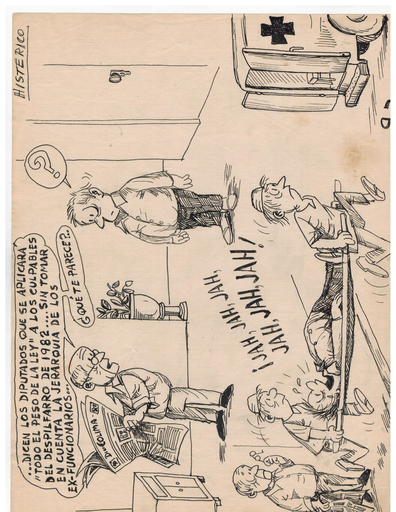 HISTERICO
...DICEN LOS DIPUTADOS QUE SE APLICARÁ
"TODO EL PESO DE LA LEY" A LOS CULPABLES
DEL DESPILFARRO DE 1982... SIN TOMAR
EN CUENTA LA JERARQUIA DE LOS
EX-FUNCIONARIOS...
¿QUE TE PARECE?..
?
¡JAH, JAH, JAH,
JAH, JAH, JAH!